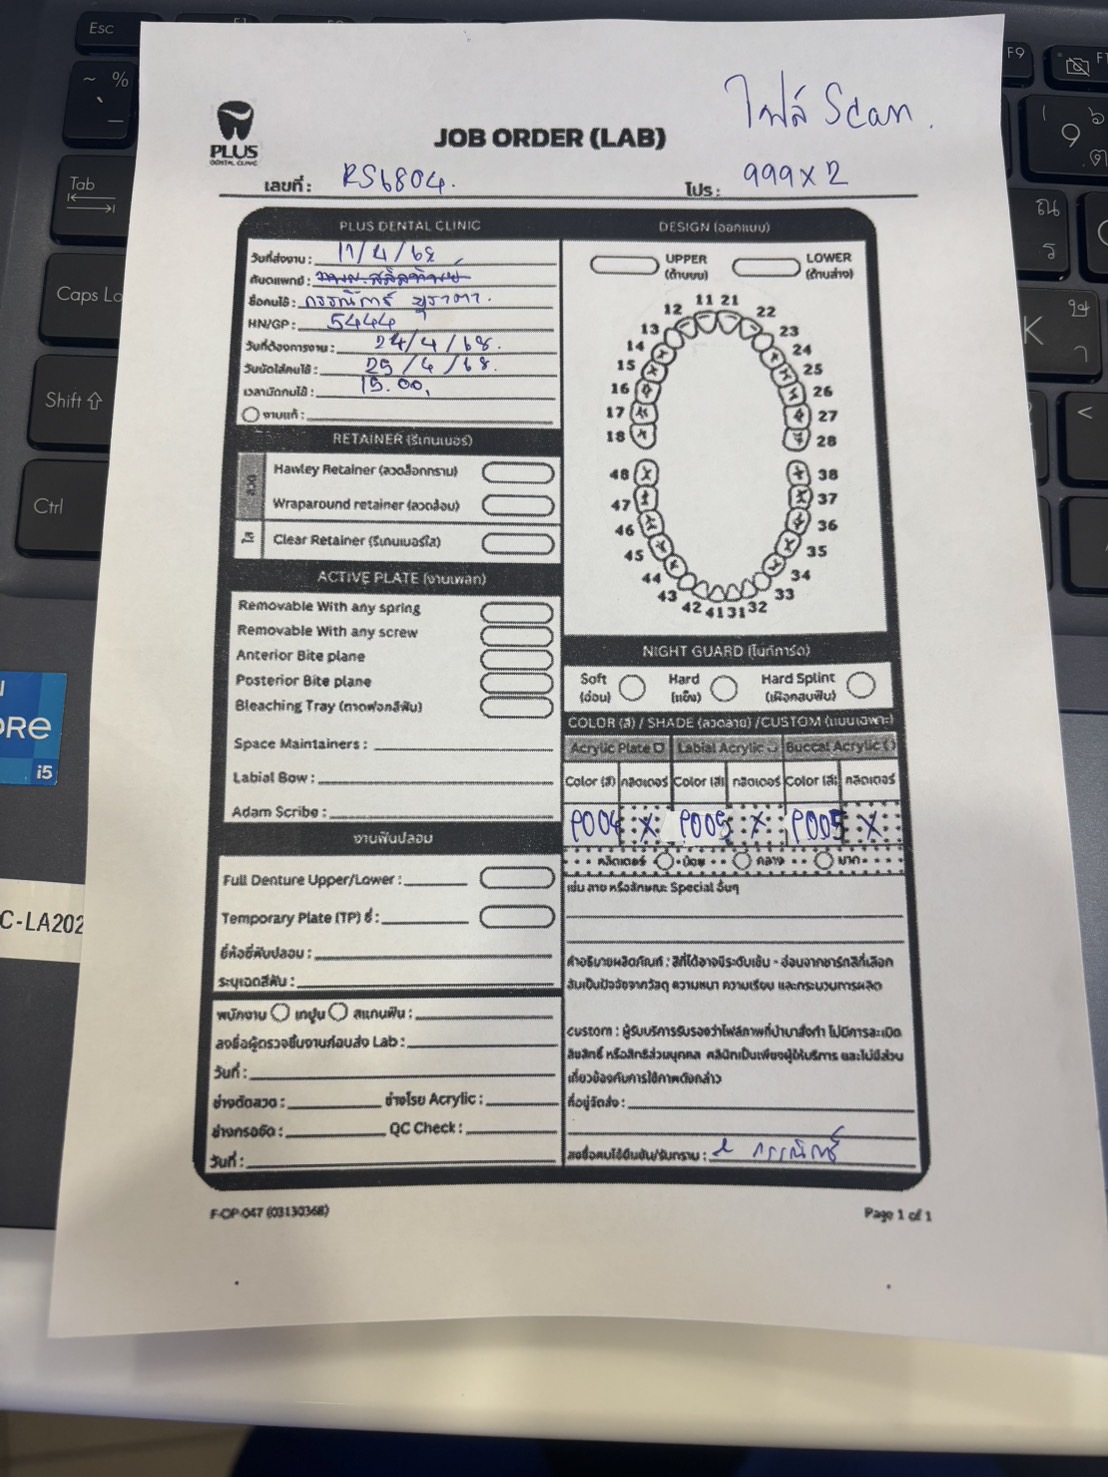 ไฟล์ Scan.
PLUS
DENTAL CLINIC
JOB ORDER (LAB)
เลขที่ : RS6804.
โปร : 999x2
PLUS DENTAL CLINIC
วันที่ส่งงาน : 17/4/68
ทันตแพทย์ :
ชื่อคนไข้ :
HN/GP : 5444
วันที่ต้องการงาน : 24/4/68.
วันนัดใส่คนไข้ : 25/4/68.
เวลานัดคนไข้ : 15.00,
งานแก้ :
RETAINER (รีเทนเนอร์)
ลวด
Hawley Retainer (ลวดล็อกกราม)
Wraparound retainer (ลวดอ้อม)
ใส
Clear Retainer (รีเทนเนอร์ใส)
ACTIVE PLATE (งานเพลท)
Removable With any spring
Removable With any screw
Anterior Bite plane
Posterior Bite plane
Bleaching Tray (ถาดฟอกสีฟัน)
Space Maintainers :
Labial Bow :
Adam Scribe :
งานฟันปลอม
Full Denture Upper/Lower :
Temporary Plate (TP) ซี่ :
ยี่ห้อซี่ฟันปลอม :
ระบุเฉดสีฟัน :
พนักงาน เทปูน สแกนฟัน :
ลงชื่อผู้ตรวจชิ้นงานก่อนส่ง Lab :
วันที่ :
ช่างดัดลวด : ช่างโรย Acrylic :
ช่างกรอขัด : QC Check :
วันที่ :
DESIGN (ออกแบบ)
UPPER (ด้านบน)
LOWER (ด้านล่าง)
11 21
12 22
13 23
14 24
15 25
16 26
17 27
18 28
48 38
47 37
46 36
45 35
44 34
43 33
42 41 31 32
NIGHT GUARD (ไนท์การ์ด)
Soft (อ่อน)
Hard (แข็ง)
Hard Splint (เฝือกสบฟัน)
COLOR (สี) / SHADE (ลวดลาย) /CUSTOM (แบบเฉพาะ)
Acrylic Plate Labial Acrylic Buccal Acrylic
Color (สี) กลิตเตอร์ Color (สี) กลิตเตอร์ Color (สี) กลิตเตอร์
P004 X P005 X P005 X
กลิตเตอร์ น้อย กลาง มาก
เช่น ลาย หรือลักษณะ Special อื่นๆ
คำอธิบายผลิตภัณฑ์ : สีที่ได้อาจมีระดับเข้ม - อ่อนจากชาร์ตสีที่เลือก
อันเป็นปัจจัยจากวัสดุ ความหนา ความเรียบ และกระบวนการผลิต
custom : ผู้รับบริการรับรองว่าไฟล์ภาพที่นำมาสั่งทำ ไม่มีการละเมิด
ลิขสิทธิ์ หรือสิทธิส่วนบุคคล คลินิกเป็นเพียงผู้ให้บริการ และไม่มีส่วน
เกี่ยวข้องกับการใช้ภาพดังกล่าว
ที่อยู่จัดส่ง :
ลงชื่อคนไข้ยืนยัน/รับทราบ :
F-OP-047 (03130368)
Page 1 of 1
Esc
Tab
Caps Lo
Shift
Ctrl
F9
K
CORE
i5
C-LA202